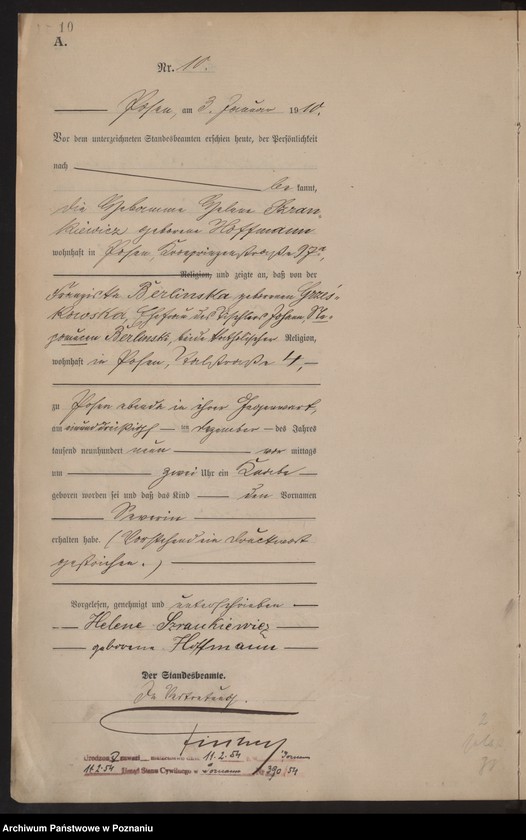 10
A.
Nr. 10.
Posen, am 3. Januar 1910.
Vor dem unterzeichneten Standesbeamten erschien heute, der Persönlichkeit
nach be kannt,
die Hebamme Helene Szran-
kiewicz geborene Hoffmann
wohnhaft in Posen, Kronprinzenstraße 97a,
Religion, und zeigte an, daß von der
Franziska Berlinska geborenen Grześ-
kowska, Ehefrau des Tischlers Johann Ne-
pomucen Berlinski, beide katholischer Religion,
wohnhaft in Posen, Talstraße 4,
zu Posen ebenda in ihrer Gegenwart,
am einunddreißigsten im Dezember des Jahres
tausend neunhundert neun vor mittags
um zwei Uhr ein Knabe
geboren worden sei und daß das Kind den Vornamen
Severin
erhalten habe. (Vorstehend ein Druckwort
gestrichen.)
Vorgelesen, genehmigt und unterschrieben
Helene Szrankiewicz
geborene Hoffmann
Der Standesbeamte.
In Vertretung.
11.2.54
11.2.54 Urząd Stanu Cywilnego w Poznaniu 390/54
2
Archiwum Państwowe w Poznaniu